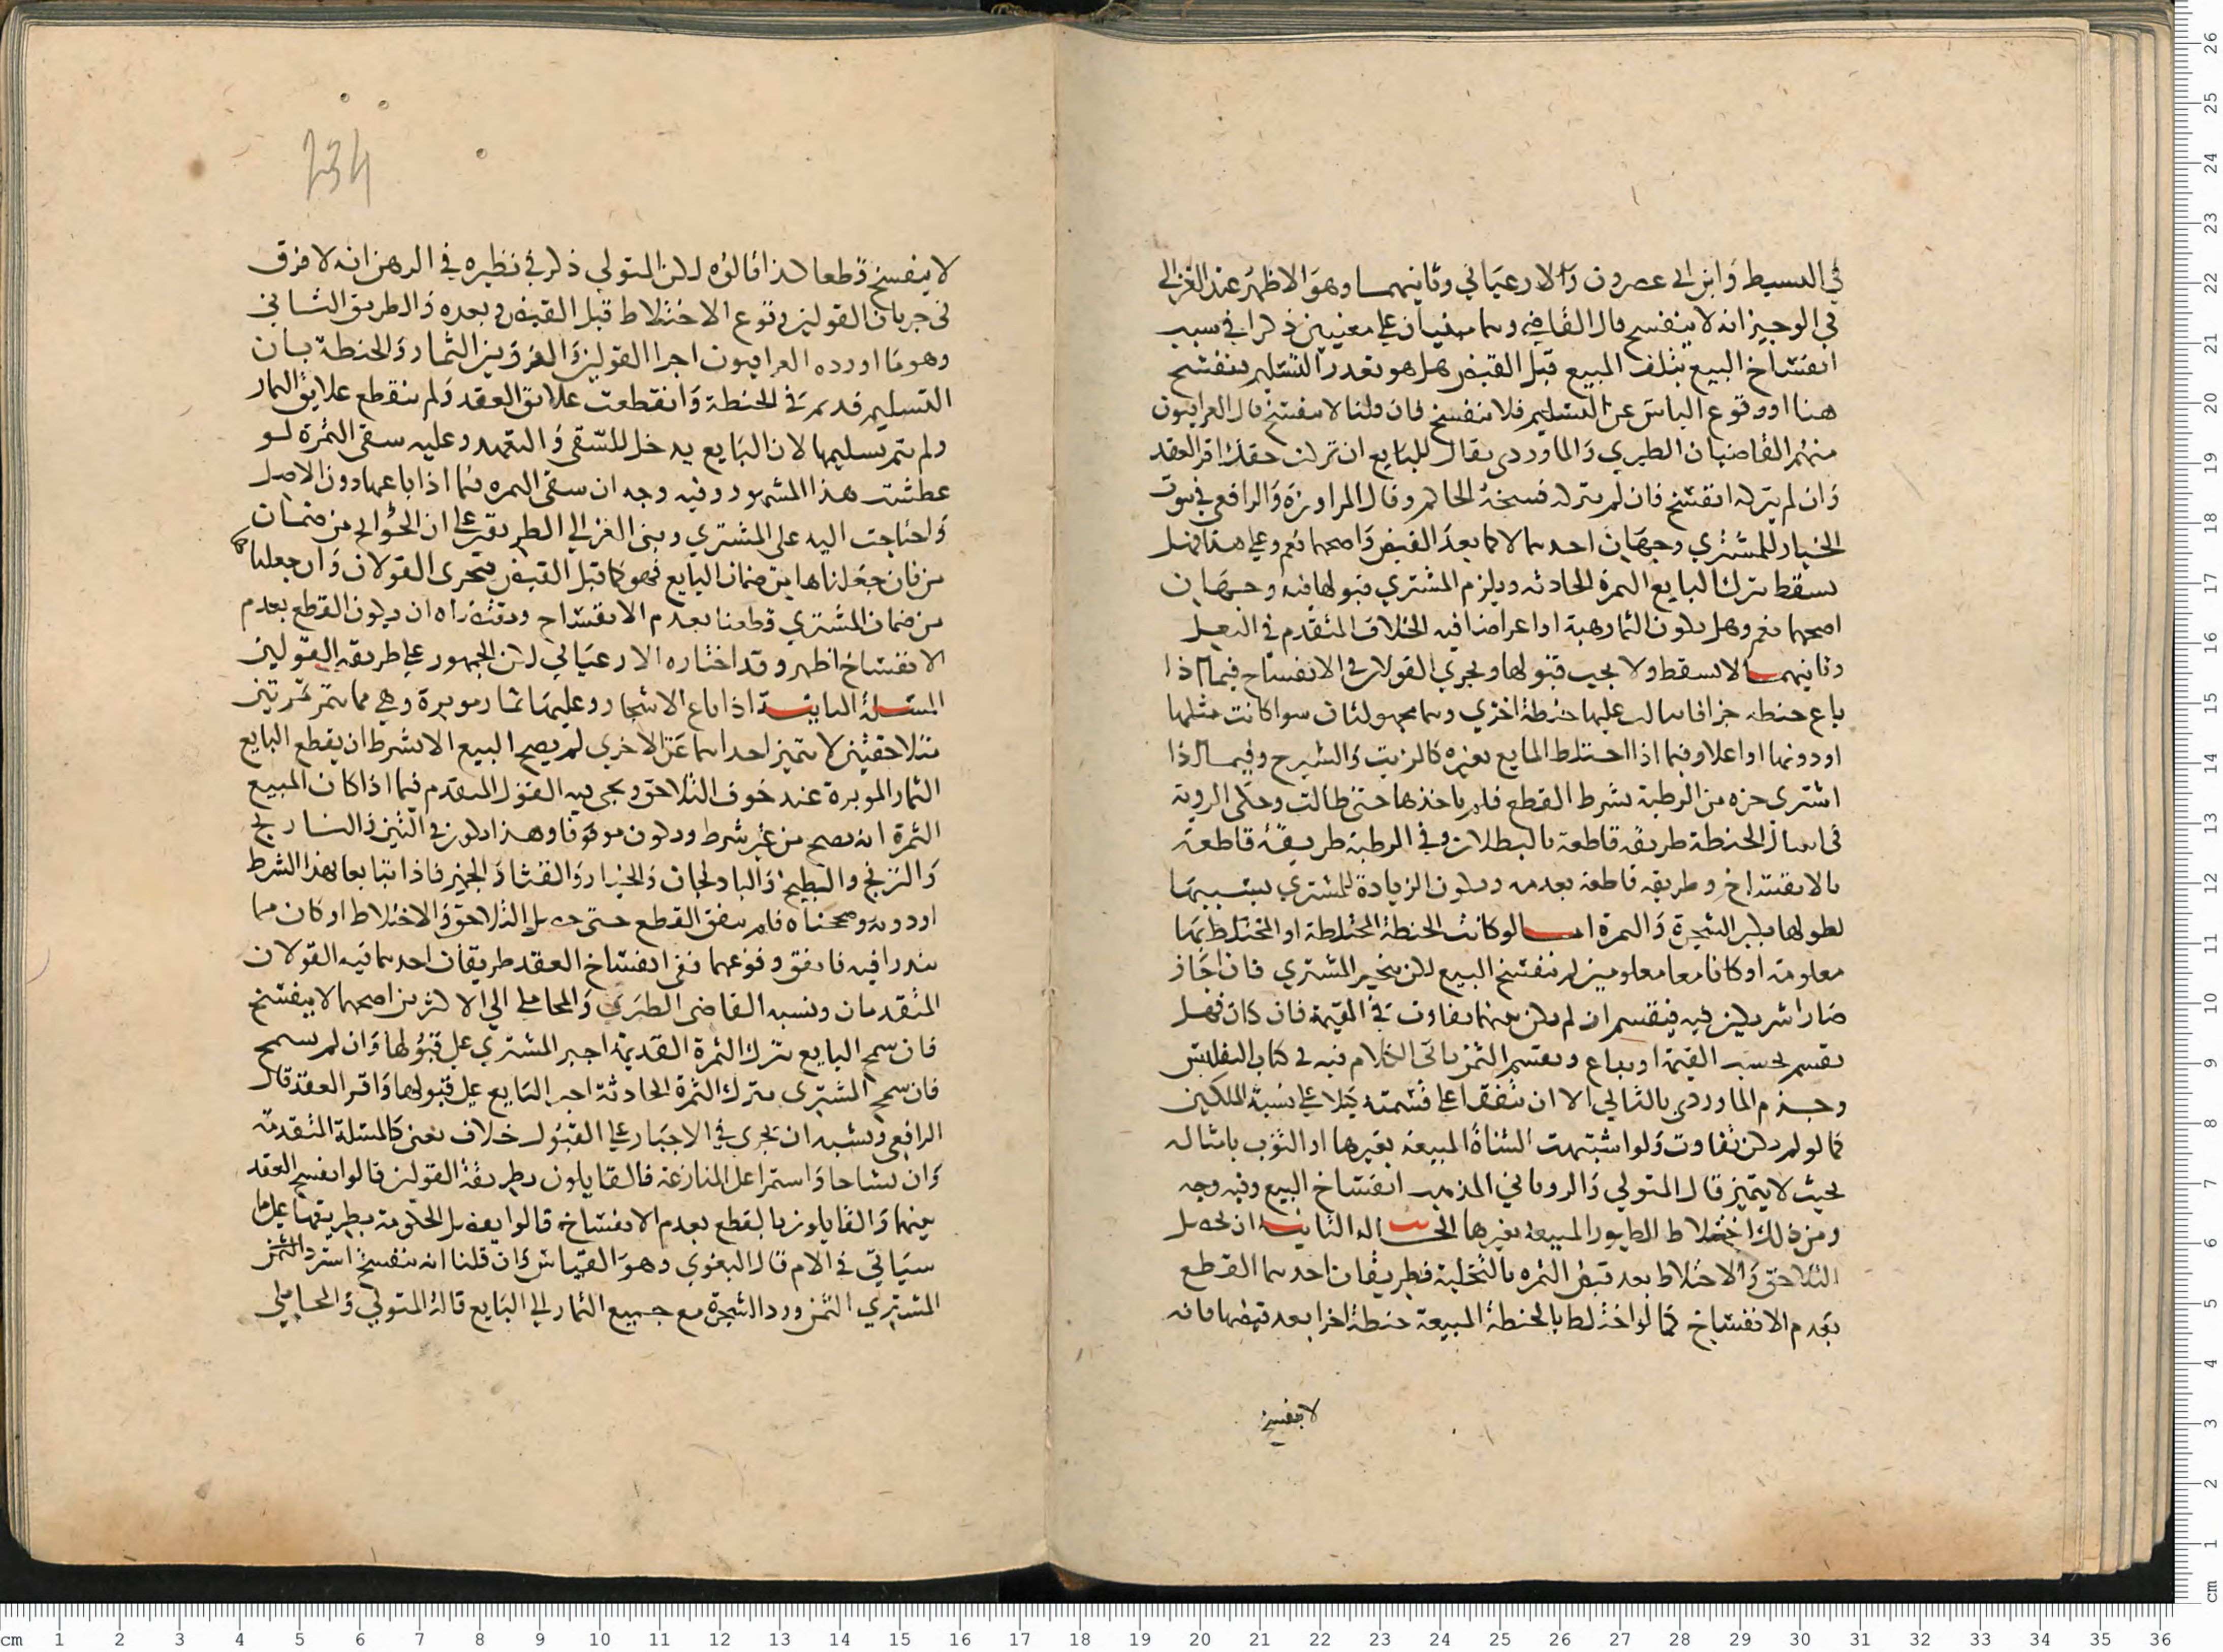 في البسيط وابن ابي عصرون والارغياني وثانيهما وهو الاظهر عند الغزالي
في الوجيز انه لا ينفسخ قال القاضي وهما مبنيان علي معنيين ذكرا في سبب
انفساخ البيع بتلف المبيع قبل القبض هل هو تعذر التسليم فينفسخ
هنا او وقوع الياس عن التسليم فلا ينفسخ فان قلنا لا ينفسخ قال العراقيون
منهم القاضيان الطبري والماوردي يقال للبايع ان تركت حقك اقر العقد
وان لم يترك انفسخ فان لم يترك فسخه الحاكم وقال المراوزة والرافعي في ثبوت
الخيار للمشتري وجهان احدهما لا كما بعد القبض واصحهما نعم وعلي هذا فهل
يسقط بترك البايع الثمرة الحادثه ويلزم المشتري قبولها فيه وجهان
اصحهما نعم وهل يكون الثمار هبة او اعراضا فيه الخلاف المتقدم في النعل
وثانيهما لا يسقط ولا يجب قبولها ويجري القولان في الانفساخ فيما اذا
باع حنطه جزافا فانهالت عليها حنطة اخري وهما مجهولتان سوا كانت مثلها
او دونها او اعلا وفيما اذا اختلط المايع بغيره كالزيت والشيرج وفيما اذا
اشتري جزه من الرطبة بشرط القطع فلم ياخذها حتي طالت وحكي الروية
في انهيال الحنطة طريقه قاطعة بالبطلان وفي الرطبة طريقة قاطعة
بالانفساخ وطريقه قاطعة بعدمه ويكون الزيادة للمشتري يشبيها
لطولها بكبر الشجرة والثمرة اما لو كانت الحنطة المختلطة او المختلط بها
معلومة او كانا معا معلومين لم ينفسخ البيع لكن يتخير المشتري فان اجاز
صارا شريكين فيه فيقسم ان لم يكن بينهما تفاوت في القيمة فان كان فهل
يقسم بحسب القيمة او يباع ويقسم الثمن ياتي الكلام فيه في كتاب التفليس
وجزم الماوردي بالثاني الا ان يتفقا علي قسمته كيلا علي نسبة الملكين
كما لو لم يكن تفاوت ولو اشتبهت الشاة المبيعة بغيرها او الثوب بامثاله
بحيث لا يتميز قال المتولي والروياني المذهب انفساخ البيع وفيه وجه
ومن ذلك اختلاط الطيور المبيعة بغيرها الحالة الثانية ان يحصل
التلاحق والاختلاط بعد قبض الثمره بالتخلية فطريقان احدهما القطع
بعدم الانفساخ كما لو اختلط بالحنطة المبيعة حنطة اخرا بعد قبضها فانه
لا ينفسخ
234
لا ينفسخ قطعا كذا قالوه لكن المتولي ذكر في نظيره في الرهن انه لا فرق
في جريان القولين في وقوع الاختلاط قبل القبض وبعده والطريق الثاني
وهو ما اورده العراقيون اجرا القولين والفرق بين الثمار والحنطة بان
التسليم قد تم في الحنطة وانقطعت علايق العقد ولم ينقطع علايق الثمار
ولم يتم تسليمها لان البايع يدخل للسقي والتعهد وعليه سقي الثمرة لو
عطشت هذا المشهور وفيه وجه ان سقي الثمره فيما اذا باعها دون الاصل
واحتاجت اليه علي المشتري وبني الغزالي الطريقين علي ان الجوايح من ضمان
من فان جعلناها من ضمان البايع فهو كما قبل القبض فيجري القولان وان جعلناها
من ضمان المشتري قطعنا بعدم الانفساخ ان يكون القطع بعدم
الانفساخ اظهر وقد اختاره الارغياني لكن الجمهور علي طريقة القولين
المسئلة الثانية اذا باع الاشجار وعليها ثمار موبرة وهي مما يثمر مرتين
متلاحقتين لا يتميز احداهما عن الاخري لم يصح البيع الا بشرط ان يقطع البايع
الثمار الموبرة عند خوف التلاحق ويجي فيه القول المتقدم فيما اذا كان المبيع
الثمرة انه يصح من غير شرط ويكون موقوفا وهذا يكون في التين والنارنج
والترنج والبطيخ والباذنجان والخيار والقثا والجميز فاذا تبايعا بهذا الشرط
او دونه وصححناه فلم يتفق القطع حتي حصل التلاحق والاختلاط او كان مما
يندرا فيه فاتفق وقوعهما ففي انفساخ العقد طريقان احدهما فيه القولان
المتقدمان ونسبه القاضي الطبري والمحاملي الي الاكثرين اصحهما لا ينفسخ
فان سمح البايع بترك الثمرة القديمة اجبر المشتري علي قبولها وان لم يسمح
فان سمح المشتري بترك الثمرة الحادثة اجبر البايع علي قبولها واقر العقد قال
الرافعي ويشبه ان يجري في الاجبار علي القبول خلاف يعني كالمسئلة المتقدمة
وان تشاحا واستمرا علي المنازعة فالقايلون بطريقة القولين قالوا يفسخ العقد
بينهما والقايلون بالقطع بعدم الانفساخ قالوا يفصل الحكومة بطريقها علي ما
سياتي في الام قال البغوي وهو القياس وان قلنا انه ينفسخ استرد الثمن
المشتري الثمن ورد الشجرة مع جميع الثمار الي البايع قاله المتولي والمحاملي